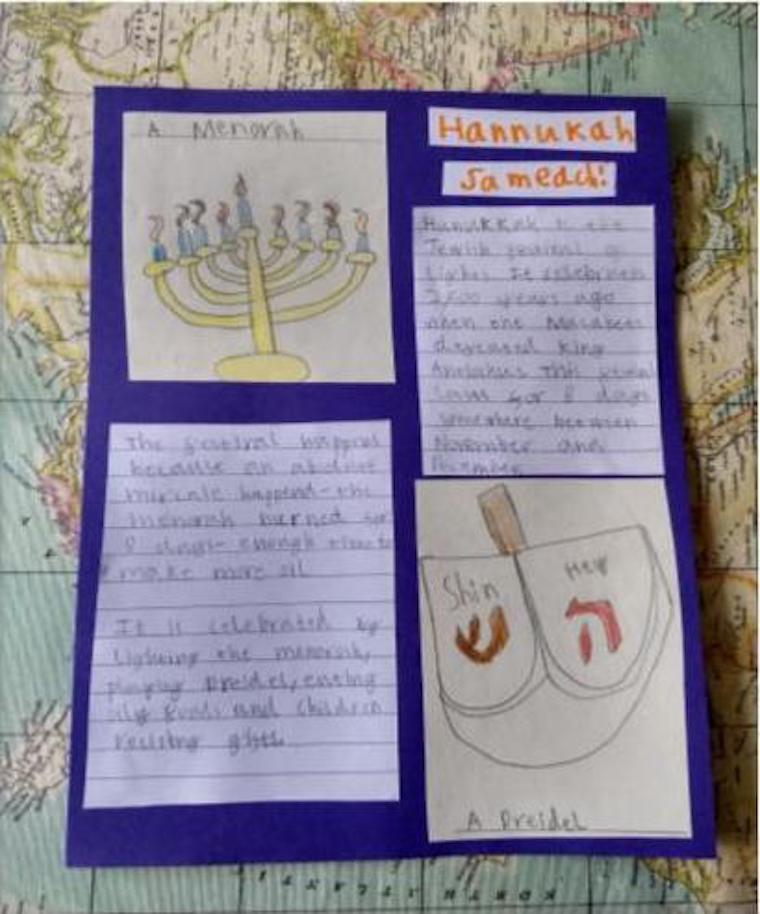 A Menorah
Hannukah
Sameach!
Hanukkah is the
Jewish festival of
Lights. It celebrates
years ago
when the Macabees
defeated King
This festival
for 8 days
somewhere between
November and
December
The festival happens
because an
miracle happend - the
menorah burned for
8 days - enough time to
make more oil
It is celebrated by
lighting the menorah,
playing Dreidel, eating
oily foods and children
gifts.
Shin
ש
Hey
ה
A Dreidel
NORTH ATLANTIC